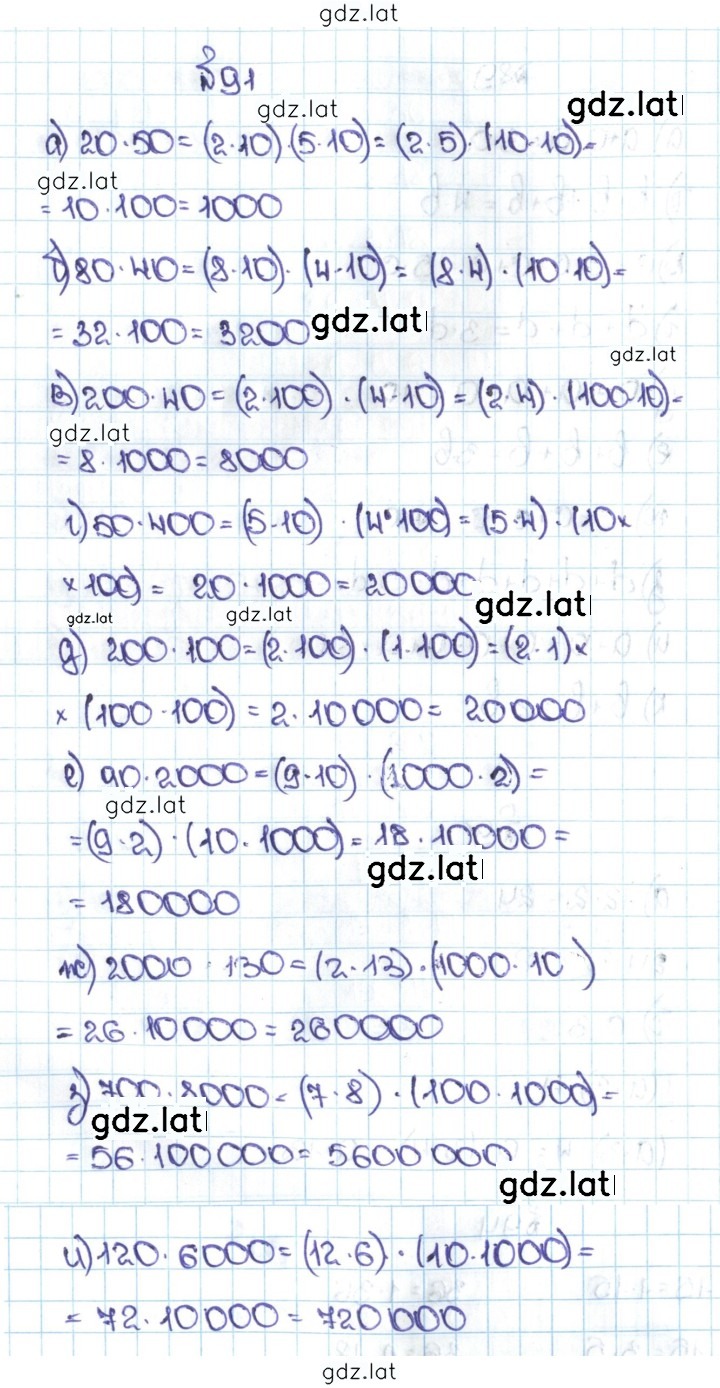 gdz.lat
№91
gdz.lat gdz.lat
а) 20·50=(2·10)·(5·10)=(2·5)·(10·10)=
gdz.lat
=10·100=1000
б) 80·40=(8·10)·(4·10)=(8·4)·(10·10)=
=32·100=3200 gdz.lat
gdz.lat
в) 200·40=(2·100)·(4·10)=(2·4)·(100·10)=
gdz.lat
=8·1000=8000
г) 50·400=(5·10)·(4·100)=(5·4)·(10×
×100)=20·1000=20000
gdz.lat gdz.lat gdz.lat
д) 200·100=(2·100)·(1·100)=(2·1)×
×(100·100)=2·10000=20000
е) 90·2000=(9·10)·(1000·2)=
gdz.lat
=(9·2)·(10·1000)=18·10000=
gdz.lat
=180000
ж) 2000·130=(2·13)·(1000·10)
=26·10000=260000
з) 700·8000=(7·8)·(100·1000)=
gdz.lat
=56·100000=5600000
gdz.lat
и) 120·6000=(12·6)·(10·1000)=
=72·10000=720000
gdz.lat